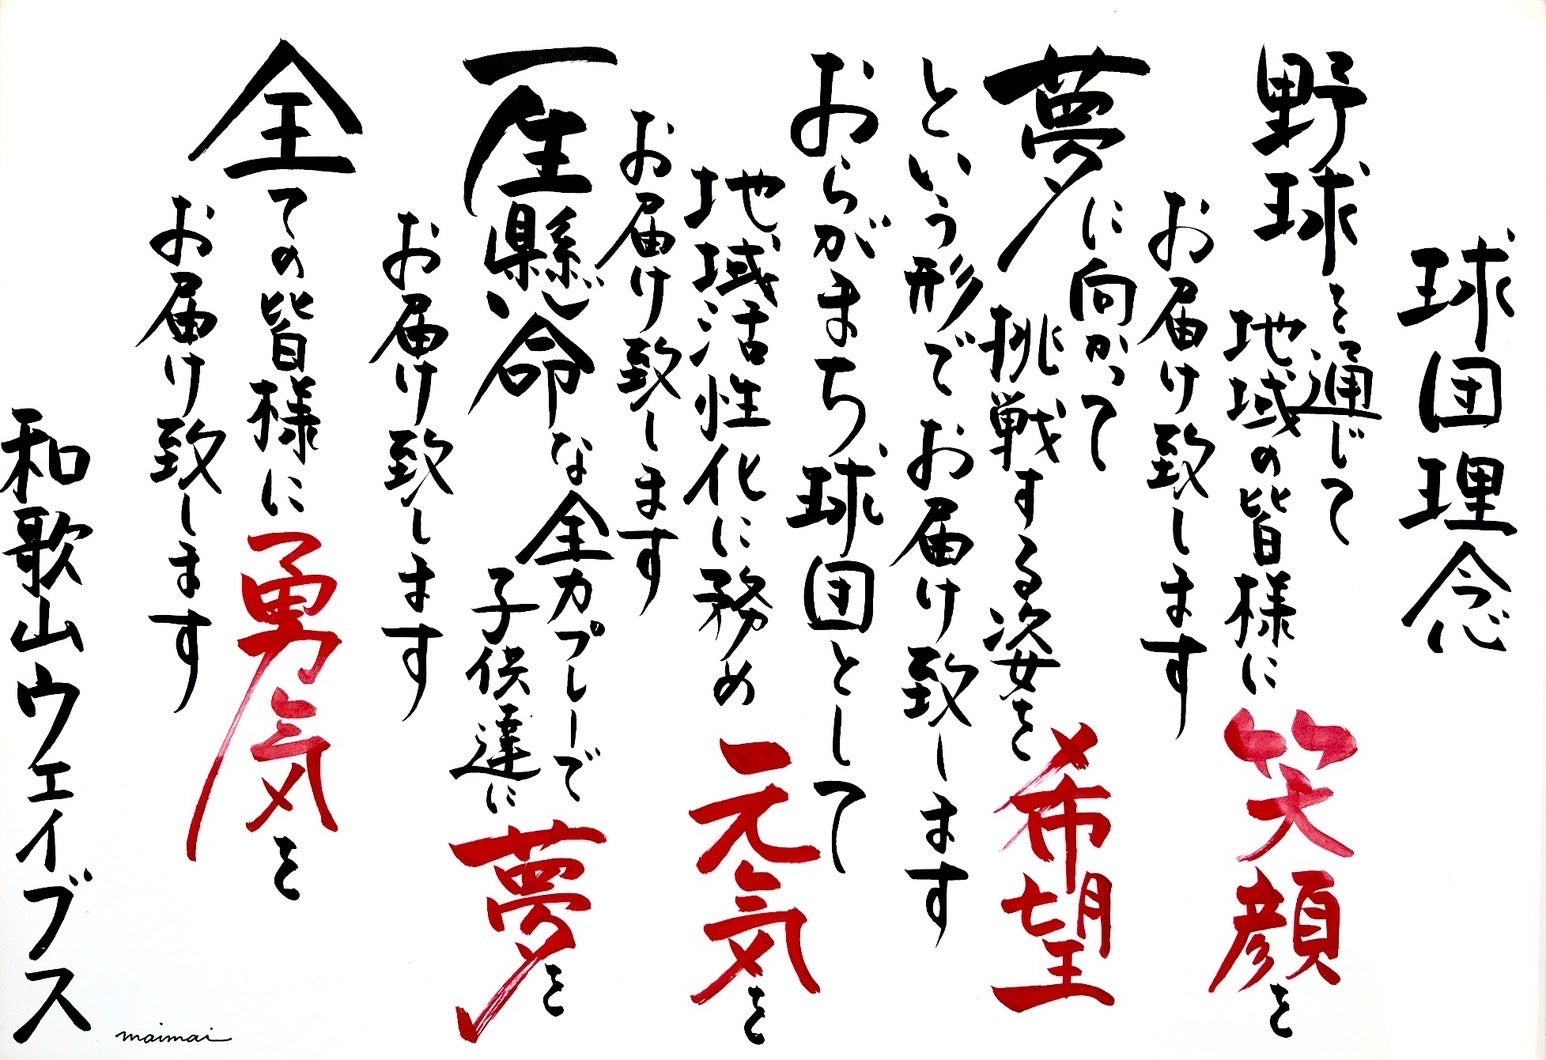 球団理念
野球を通じて
地域の皆様に笑顔を
お届け致します
夢に向かって
挑戦する姿を希望
という形でお届け致します
おらがまち球団として
地域活性化に務め元気を
お届け致します
一生懸命な全力プレーで
子供達に夢を
お届け致します
全ての皆様に勇気を
お届け致します
和歌山ウェイブス
maimai